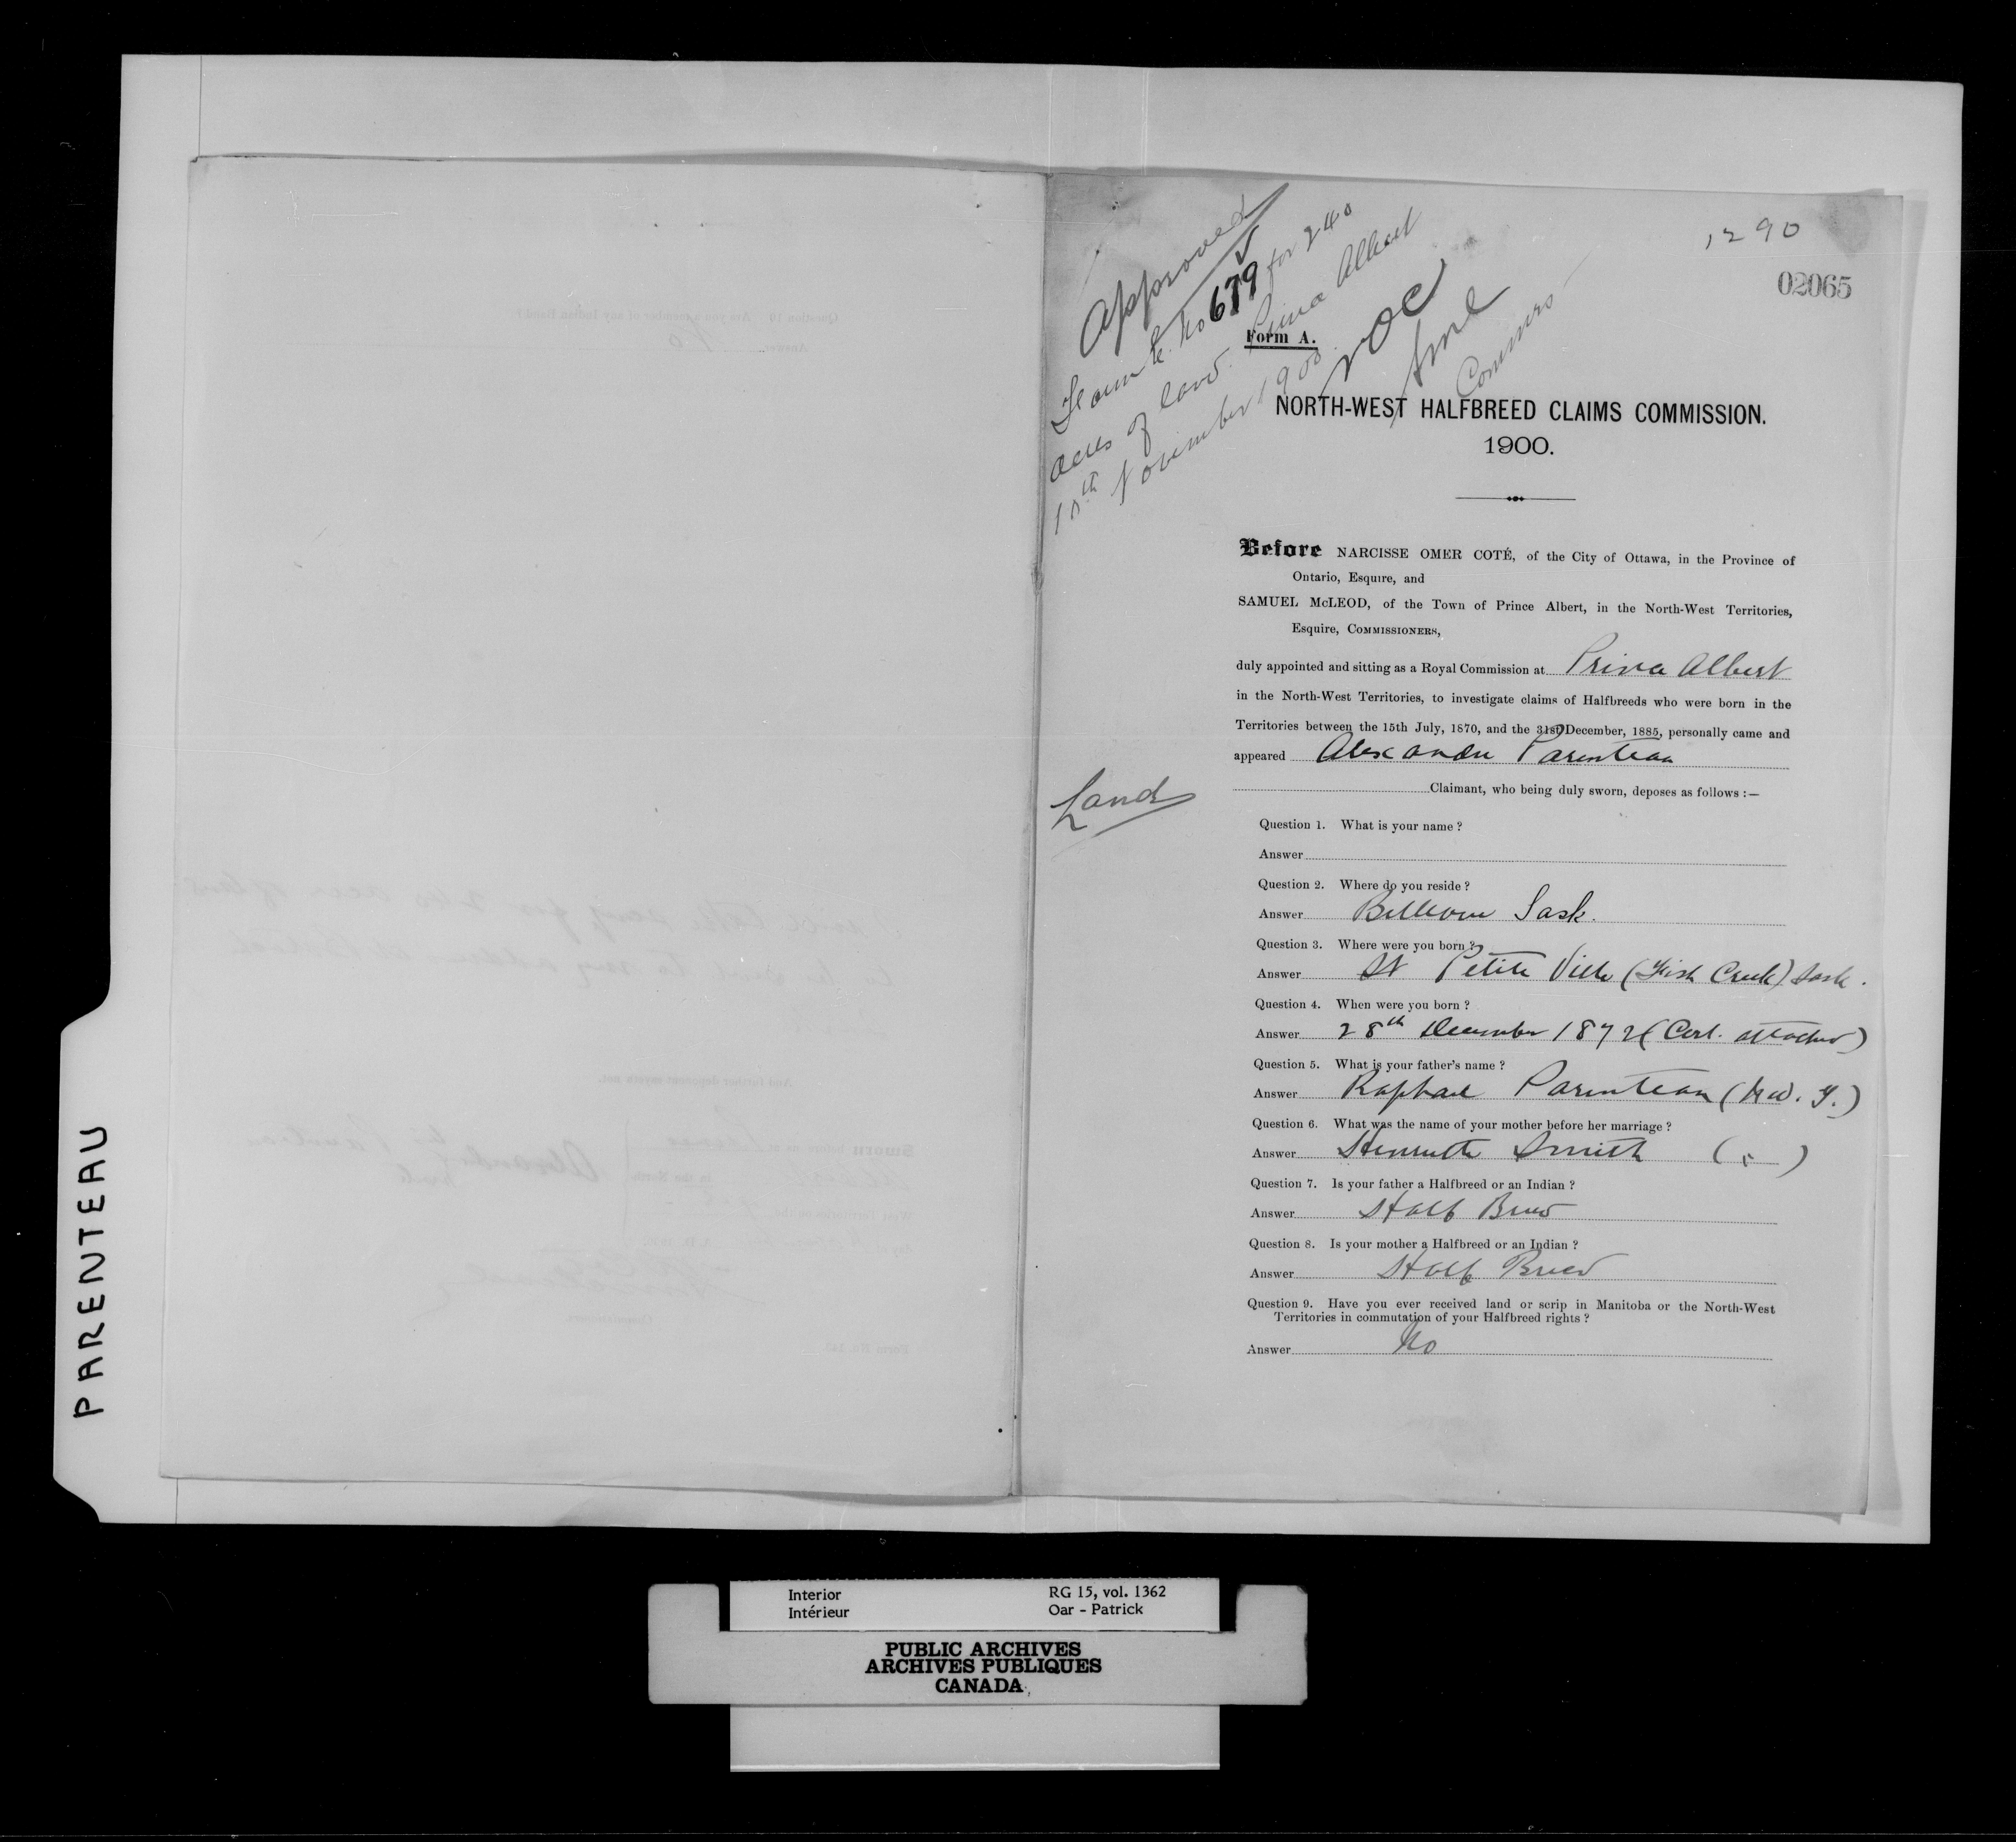 PARENTEAU
1290
02065
Approved
Form E. No 679 for 240
acres of land. Prince Albert
10th November 1900.
NOC
Commrs
Form A.
NORTH-WEST HALFBREED CLAIMS COMMISSION.
1900.
Before NARCISSE OMER COTÉ, of the City of Ottawa, in the Province of
Ontario, Esquire, and
SAMUEL McLEOD, of the Town of Prince Albert, in the North-West Territories,
Esquire, COMMISSIONERS,
duly appointed and sitting as a Royal Commission at Prince Albert
in the North-West Territories, to investigate claims of Halfbreeds who were born in the
Territories between the 15th July, 1870, and the 31st December, 1885, personally came and
appeared Alexandre Parenteau
Land
Claimant, who being duly sworn, deposes as follows :—
Question 1. What is your name ?
Answer
Question 2. Where do you reside ?
Answer Bellevue Sask.
Question 3. Where were you born ?
Answer St Petite Ville (Fish Creek) Sask.
Question 4. When were you born ?
Answer 28th December 1872 (Cert. attached)
Question 5. What is your father's name ?
Answer Raphael Parenteau (N.W.T.)
Question 6. What was the name of your mother before her marriage ?
Answer Henriette Smith ( " )
Question 7. Is your father a Halfbreed or an Indian ?
Answer Half Breed
Question 8. Is your mother a Halfbreed or an Indian ?
Answer Half Breed
Question 9. Have you ever received land or scrip in Manitoba or the North-West
Territories in commutation of your Halfbreed rights ?
Answer No
Interior RG 15, vol. 1362
Intérieur Oar - Patrick
PUBLIC ARCHIVES
ARCHIVES PUBLIQUES
CANADA